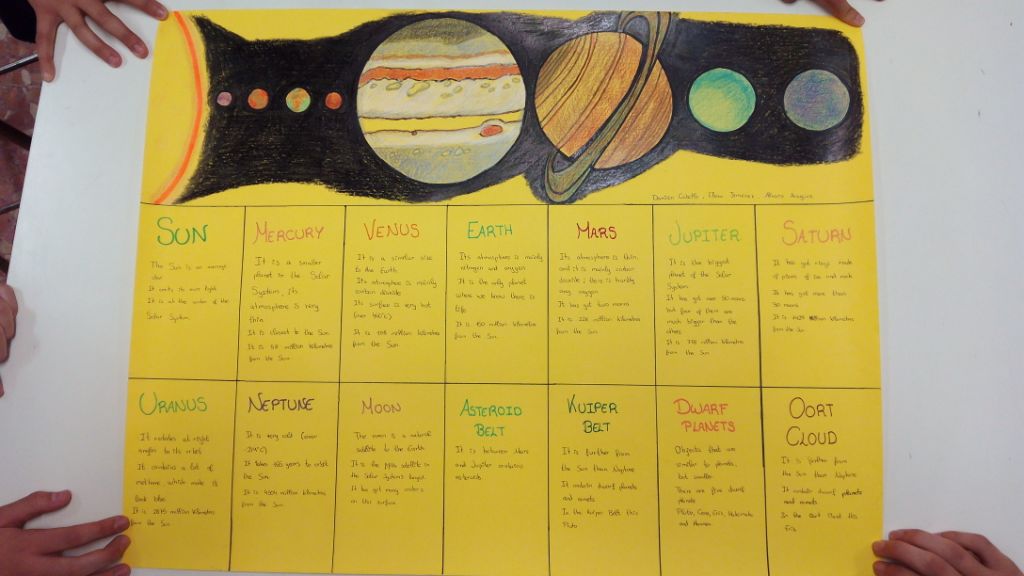 SUN
The Sun is an average
star
It emits its own light
It is at the center of the
Solar System.
MERCURY
It is a smaller
planet in the Solar
System, its
atmosphere is very
thin
It is closest to the Sun
It is 58 million kilometres
from the Sun
VENUS
It is a similar size
to the Earth
Its atmosphere is mainly
carbon dioxide
Its surface is very hot
from the Sun
EARTH
Its atmosphere is mainly
nitrogen and oxygen
It is the only planet
where we know there is
life
It is 150 million kilometres
from the Sun
MARS
Its atmosphere is thin
and it is mainly carbon
dioxide; there is hardly
any oxygen
It has got two moons
It is 228 million kilometres
from the Sun
JUPITER
It is the biggest
planet of the Solar
System
It has got over 50 moons
but four of them are
much bigger than the
others
It is 778 million kilometres
from the Sun
SATURN
It has got rings made
of pieces of ice and rock
It has got more than
30 moons
million kilometres
from the Sun
URANUS
It rotates at right
angles to its orbit
It contains a lot of
methane which make its
look blue
It is million kilometres
from the Sun
NEPTUNE
It is very cold
It takes 165 years to orbit
the Sun
It is 4504 million kilometres
from the Sun
MOON
The moon is a natural
satellite to the Earth
It is the fifth satellite in
the Solar System's
It has got many craters
in this surface
ASTEROID
BELT
It is between Mars
and Jupiter contains
asteroids
KUIPER
BELT
It is further from
the Sun than Neptune
It contain dwarf planets
and comets
In the Kuiper Belt this
Pluto
DWARF
PLANETS
Objects that are
similar to planets,
but smaller.
There are five dwarf
planets
Pluto, Ceres, Eris, Makemake
and Haumea
OORT
CLOUD
It is further from
the Sun than Neptune
It contain dwarf planets
and comets
In the Oort Cloud this
Eris